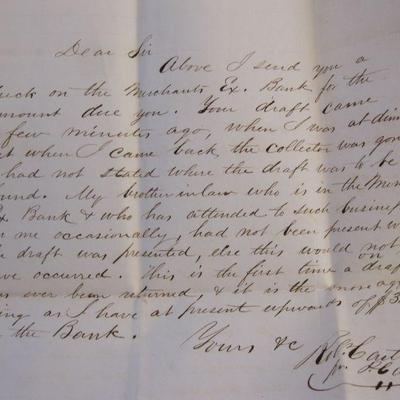 Dear Sir
Above I send you a
heck on the Merchants Ex. Bank for the
mount due you. Your draft came
few minutes ago, when I was at din
t when I came back the collector was gon
had not stated where the draft was to be
und. My brother in law who is in the Mer
Ex Bank & who has attended to such business
me occasionally, had not been present w
e draft was presented, else this would not
ve occurred. This is the first time a draft on
as ever been returned, & it is the more ag
ing as I have at present upwards of $3
the Bank.
Yours &c